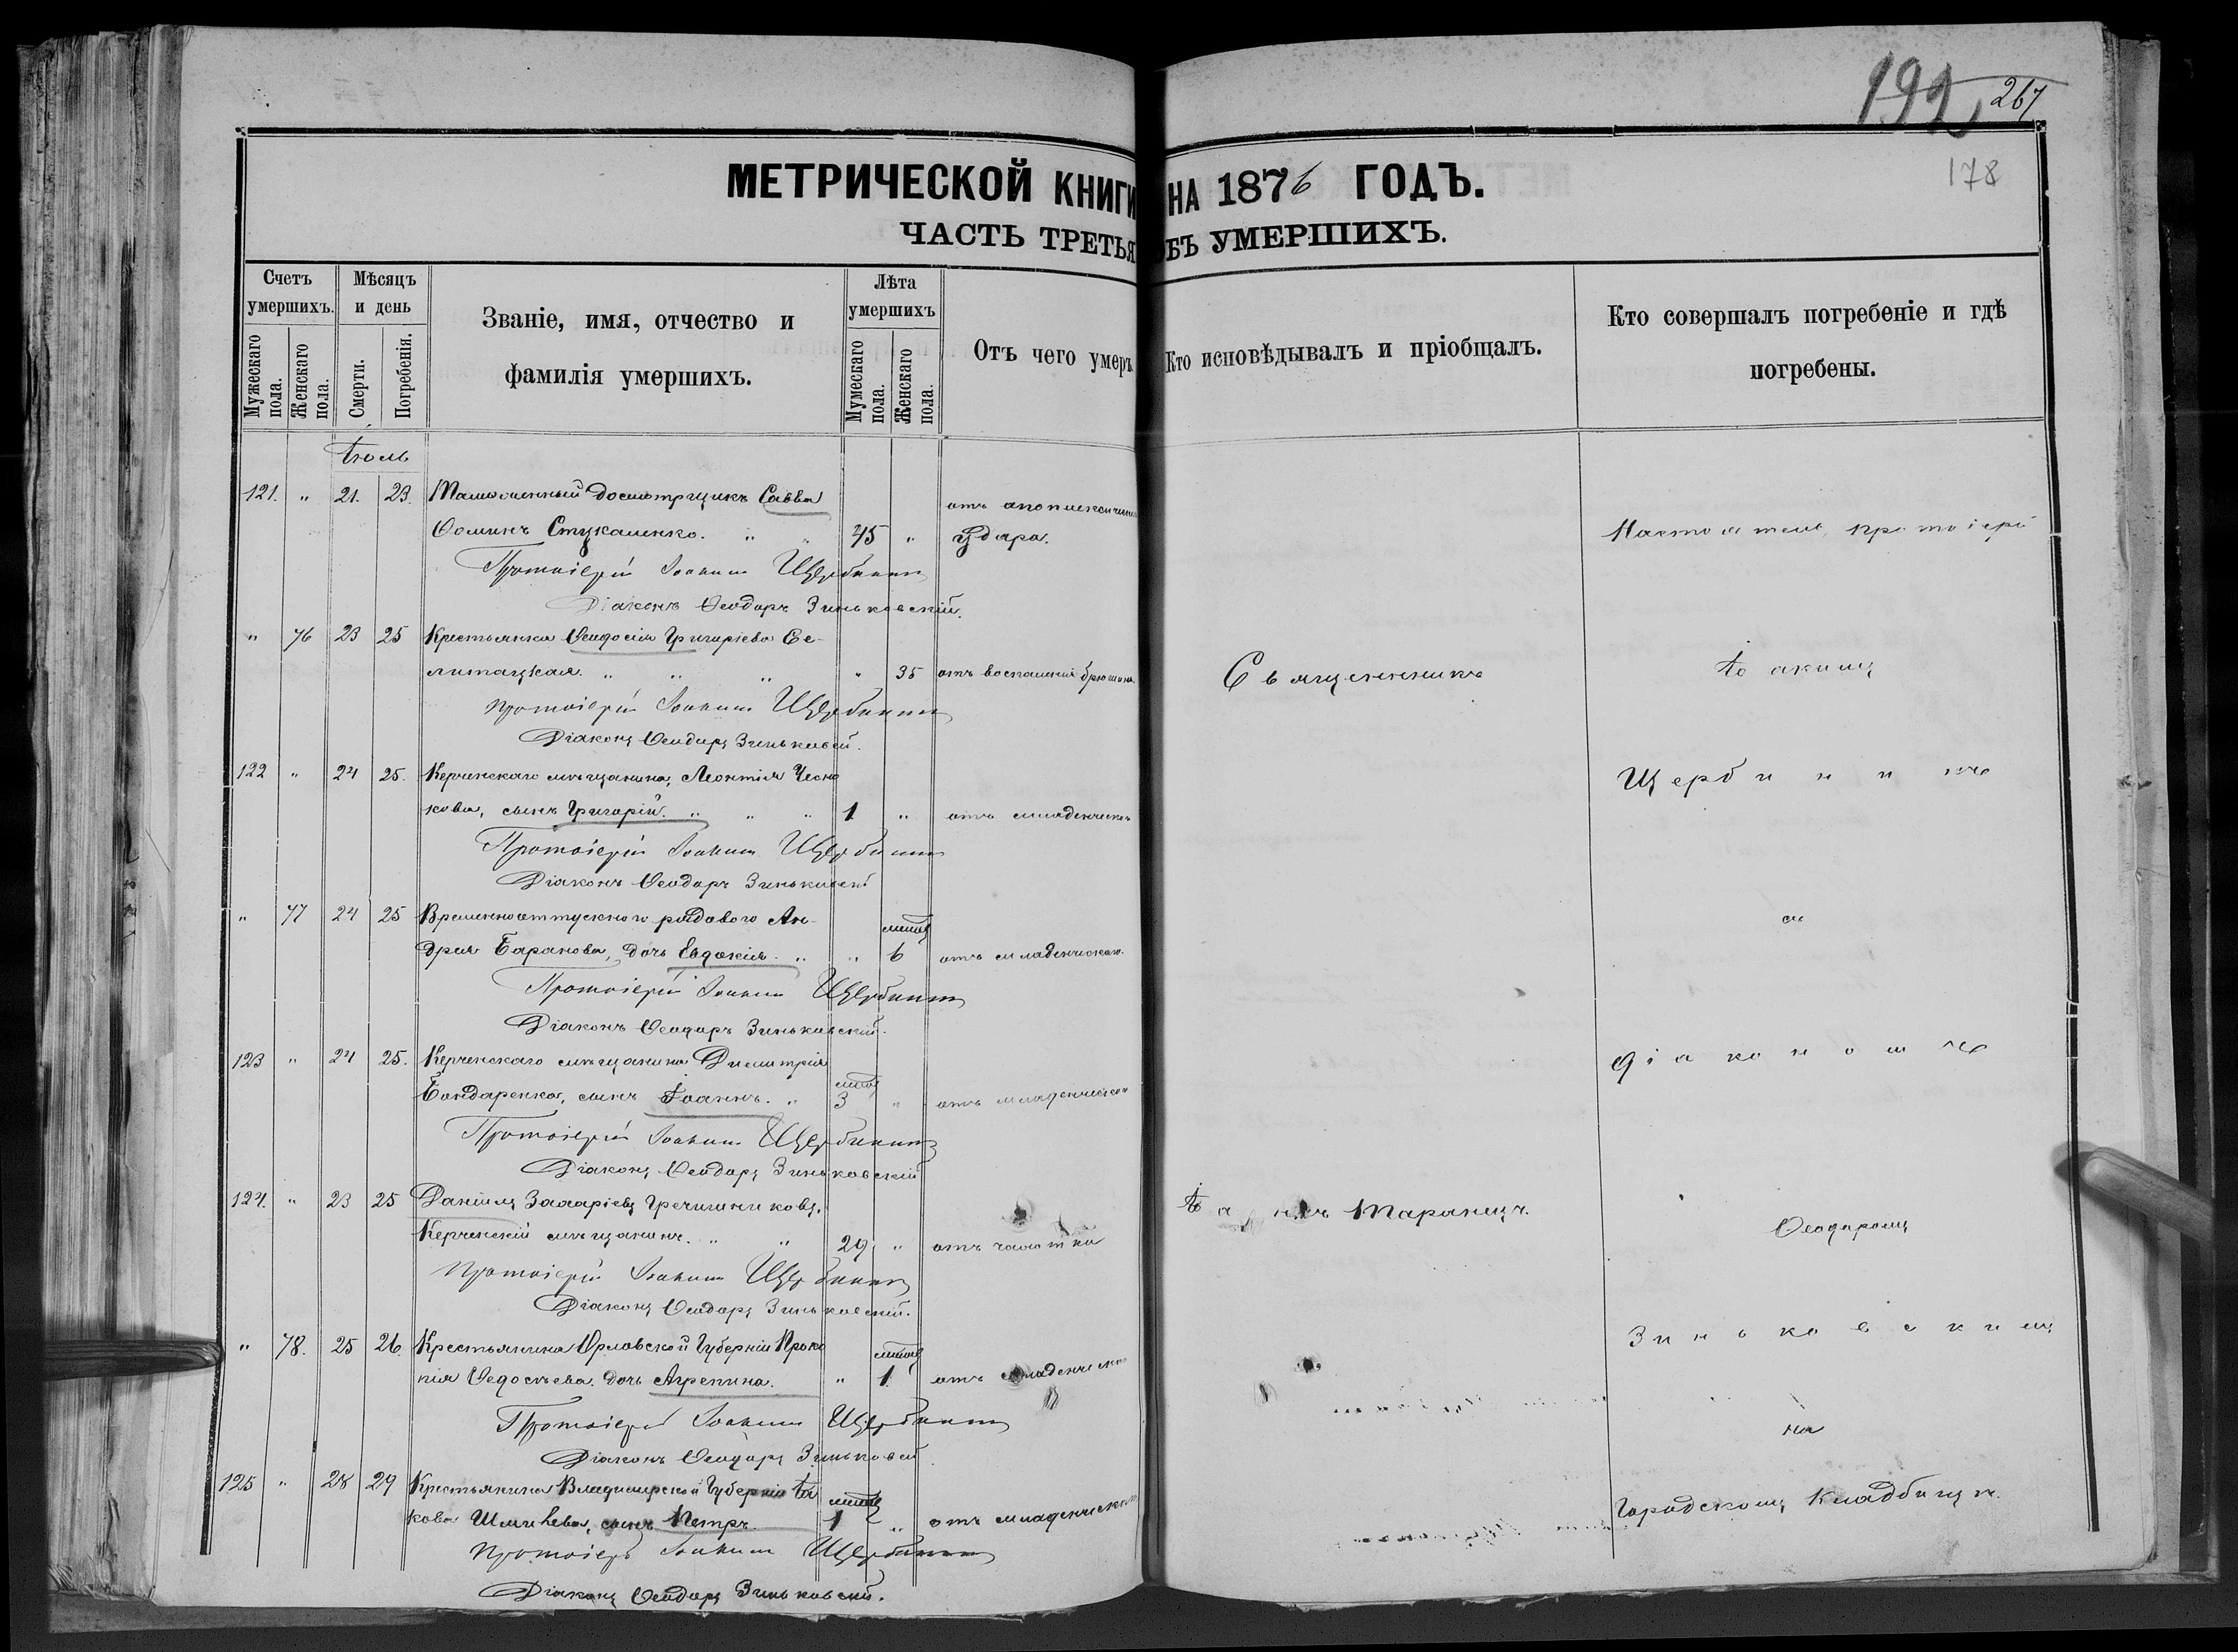 192 267
178
МЕТРИЧЕСКОЙ КНИГИ НА 1876 ГОДЪ.
ЧАСТЬ ТРЕТЬЯ БЪ УМЕРШИХЪ.
Счетъ умершихъ.
Мужескаго пола.
Женскаго пола.
Мѣсяцъ и день
Смерти.
Погребенія.
Званіе, имя, отчество и
фамилія умершихъ.
Лѣта умершихъ
Мумескаго пола.
Женскаго пола.
Отъ чего умеръ.
Кто исповѣдывалъ и пріобщалъ.
Кто совершалъ погребеніе и гдѣ
погребены.
Іюль
121. " 21. 23. Таможенный досмотрщикъ Савва
Ѳоминъ Стукаленко. " " 45 " отъ апоплексическ
удара.
Протоіерей Іоакимъ Щербининъ
Діаконъ Ѳеодоръ Зиньковскій.
" 76 23 25 Крестьянка Ѳеодосія Григоріева Се-
литацкая. " " " " 35 отъ воспаленія брюшины
Протоіерей Іоакимъ Щербининъ
Діаконъ Ѳеодоръ Зиньковскій.
122 " 24 25. Керченскаго мѣщанина, Леонтія Чесно
кова, сынъ Григорій. " " " 1 " отъ младенческаго
Протоіерей Іоакимъ Щербининъ
Діаконъ Ѳеодоръ Зиньковскій
" 77 24 25 Временноотпускнаго рядового Ан-
дрея Баранова, дочь Евдокія. " " мѣсяц 6 отъ младенческаго.
Протоіерей Іоакимъ Щербининъ
Діаконъ Ѳеодоръ Зиньковскій.
123 " 24 25. Керченскаго мѣщанина Димитрія
Бондаренко, сынъ Іоаннъ. " мѣсяц 3 " отъ младенческаго
Протоіерей Іоакимъ Щербининъ
Діаконъ Ѳеодоръ Зиньковскій
124. " 23 25 Даніилъ Захаріевъ Гречишниковъ,
Керченскій мѣщанинъ. " " 29 " отъ чахотки
Протоіерей Іоакимъ Щербининъ
Діаконъ Ѳеодоръ Зиньковскій.
" 78. 25 26. Крестьянина Орловской Губерніи Проко
пія Ѳедосѣева. дочь Агрепина. " мѣсяц 1. отъ младенческаго
Протоіерей Іоакимъ Щербининъ
Діаконъ Ѳеодоръ Зиньковскій
125 " 28 29 Крестьянина Владимирской Губерніи Іа
кова сынъ Петръ. мѣсяц 1 " отъ младенческаго
Протоіерей Іоакимъ Щербининъ
Діаконъ Ѳеодоръ Зиньковскій.
Священникъ
Іоаннъ Таранецъ.
Настоятель, протоіерей
Іоакимъ
Щербининъ
съ
діакономъ
Ѳеодоромъ
Зиньковскимъ
на
Городскомъ Кладбищѣ.